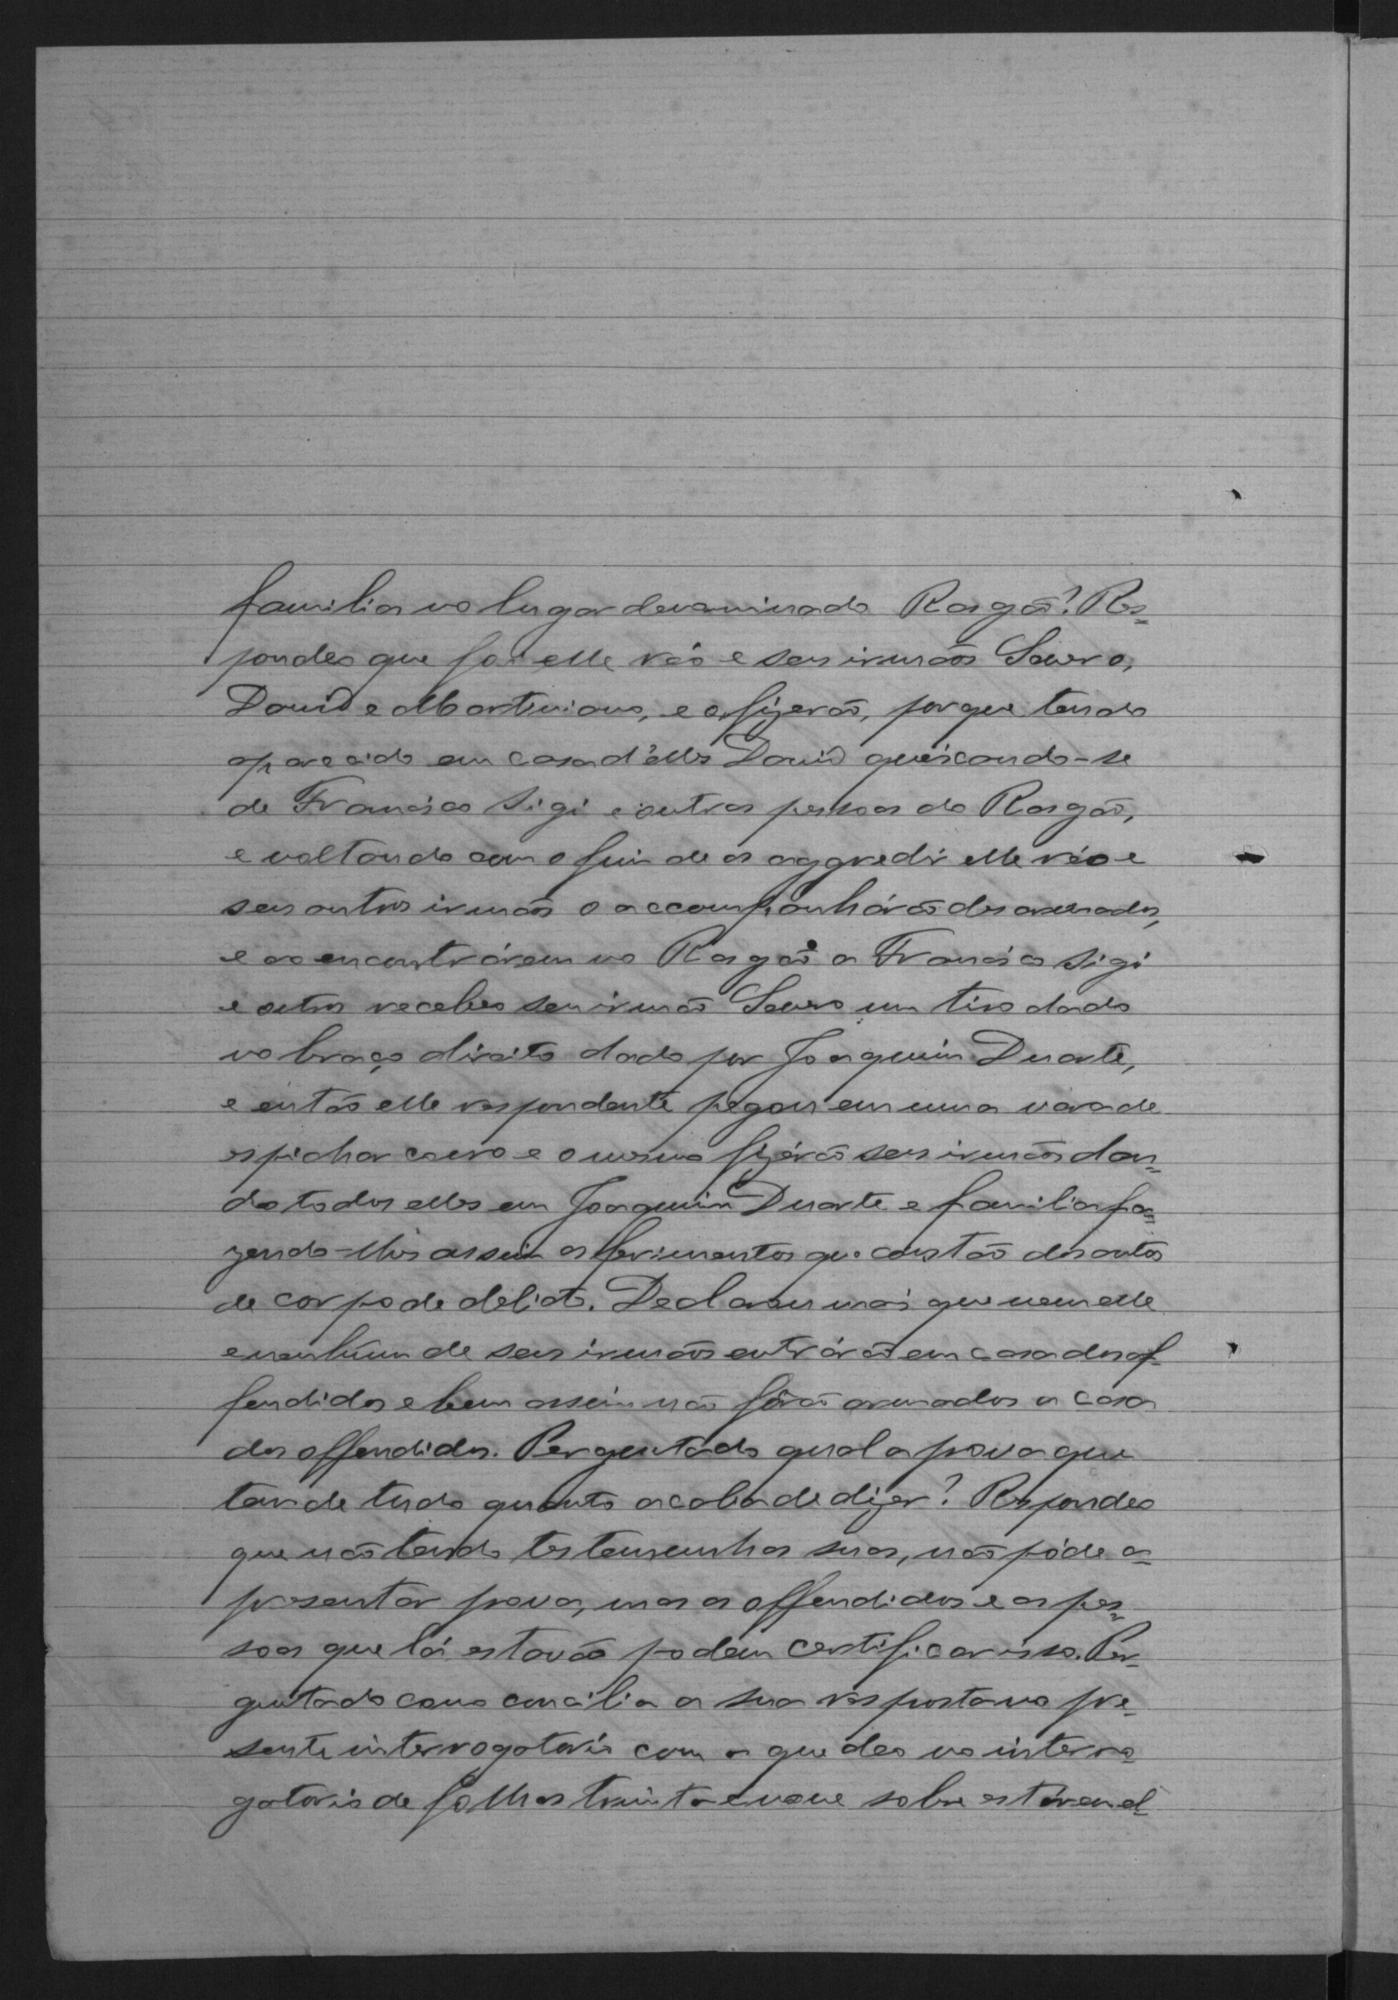 familia no lugar denominado Rasgão? Res-
pondeo que foi elle réo e seus irmãos Severo,
David e Martiniano, e o fizerão, porque tendo
aparecido em casa d'elles David queixando-se
de Francisco Sigi e outras pessoas do Rasgão,
e voltando com o fim de os aggredir elle réo e
seus outros irmãos o accompanhárão desarmados,
e ao encontrárem no Rasgão a Francisco Sigi
e outros recebeo seu irmão Severo um tiro dado
no braço direito dado por Joaquim Duarte,
e então elle respondente pegou em uma vara de
espichar couro e o mesmo fizérão seus irmãos dan-
do todos elles em Joaquim Duarte e familia fa-
zendo-lhes assim os ferimentos que constão dos autos
de corpo de delicto. Declarou mais que nem elle
e nenhum de seus irmãos entrárão em casa dos of-
fendidos e bem assim não fôrão armados a casa
dos offendidos. Perguntado qual a prova que
tem de tudo quanto acaba de dizer? Respondeo
que não tendo testemunhas suas, não póde a-
presentar prova, mas os offendidos e as pes-
soas que lá estavão podem certificar isso. Per-
guntado como concilia a sua resposta no pre-
sente interrogatorio com a que deo no interro-
gatorio de folhas trinta e nove sobre estárem el-